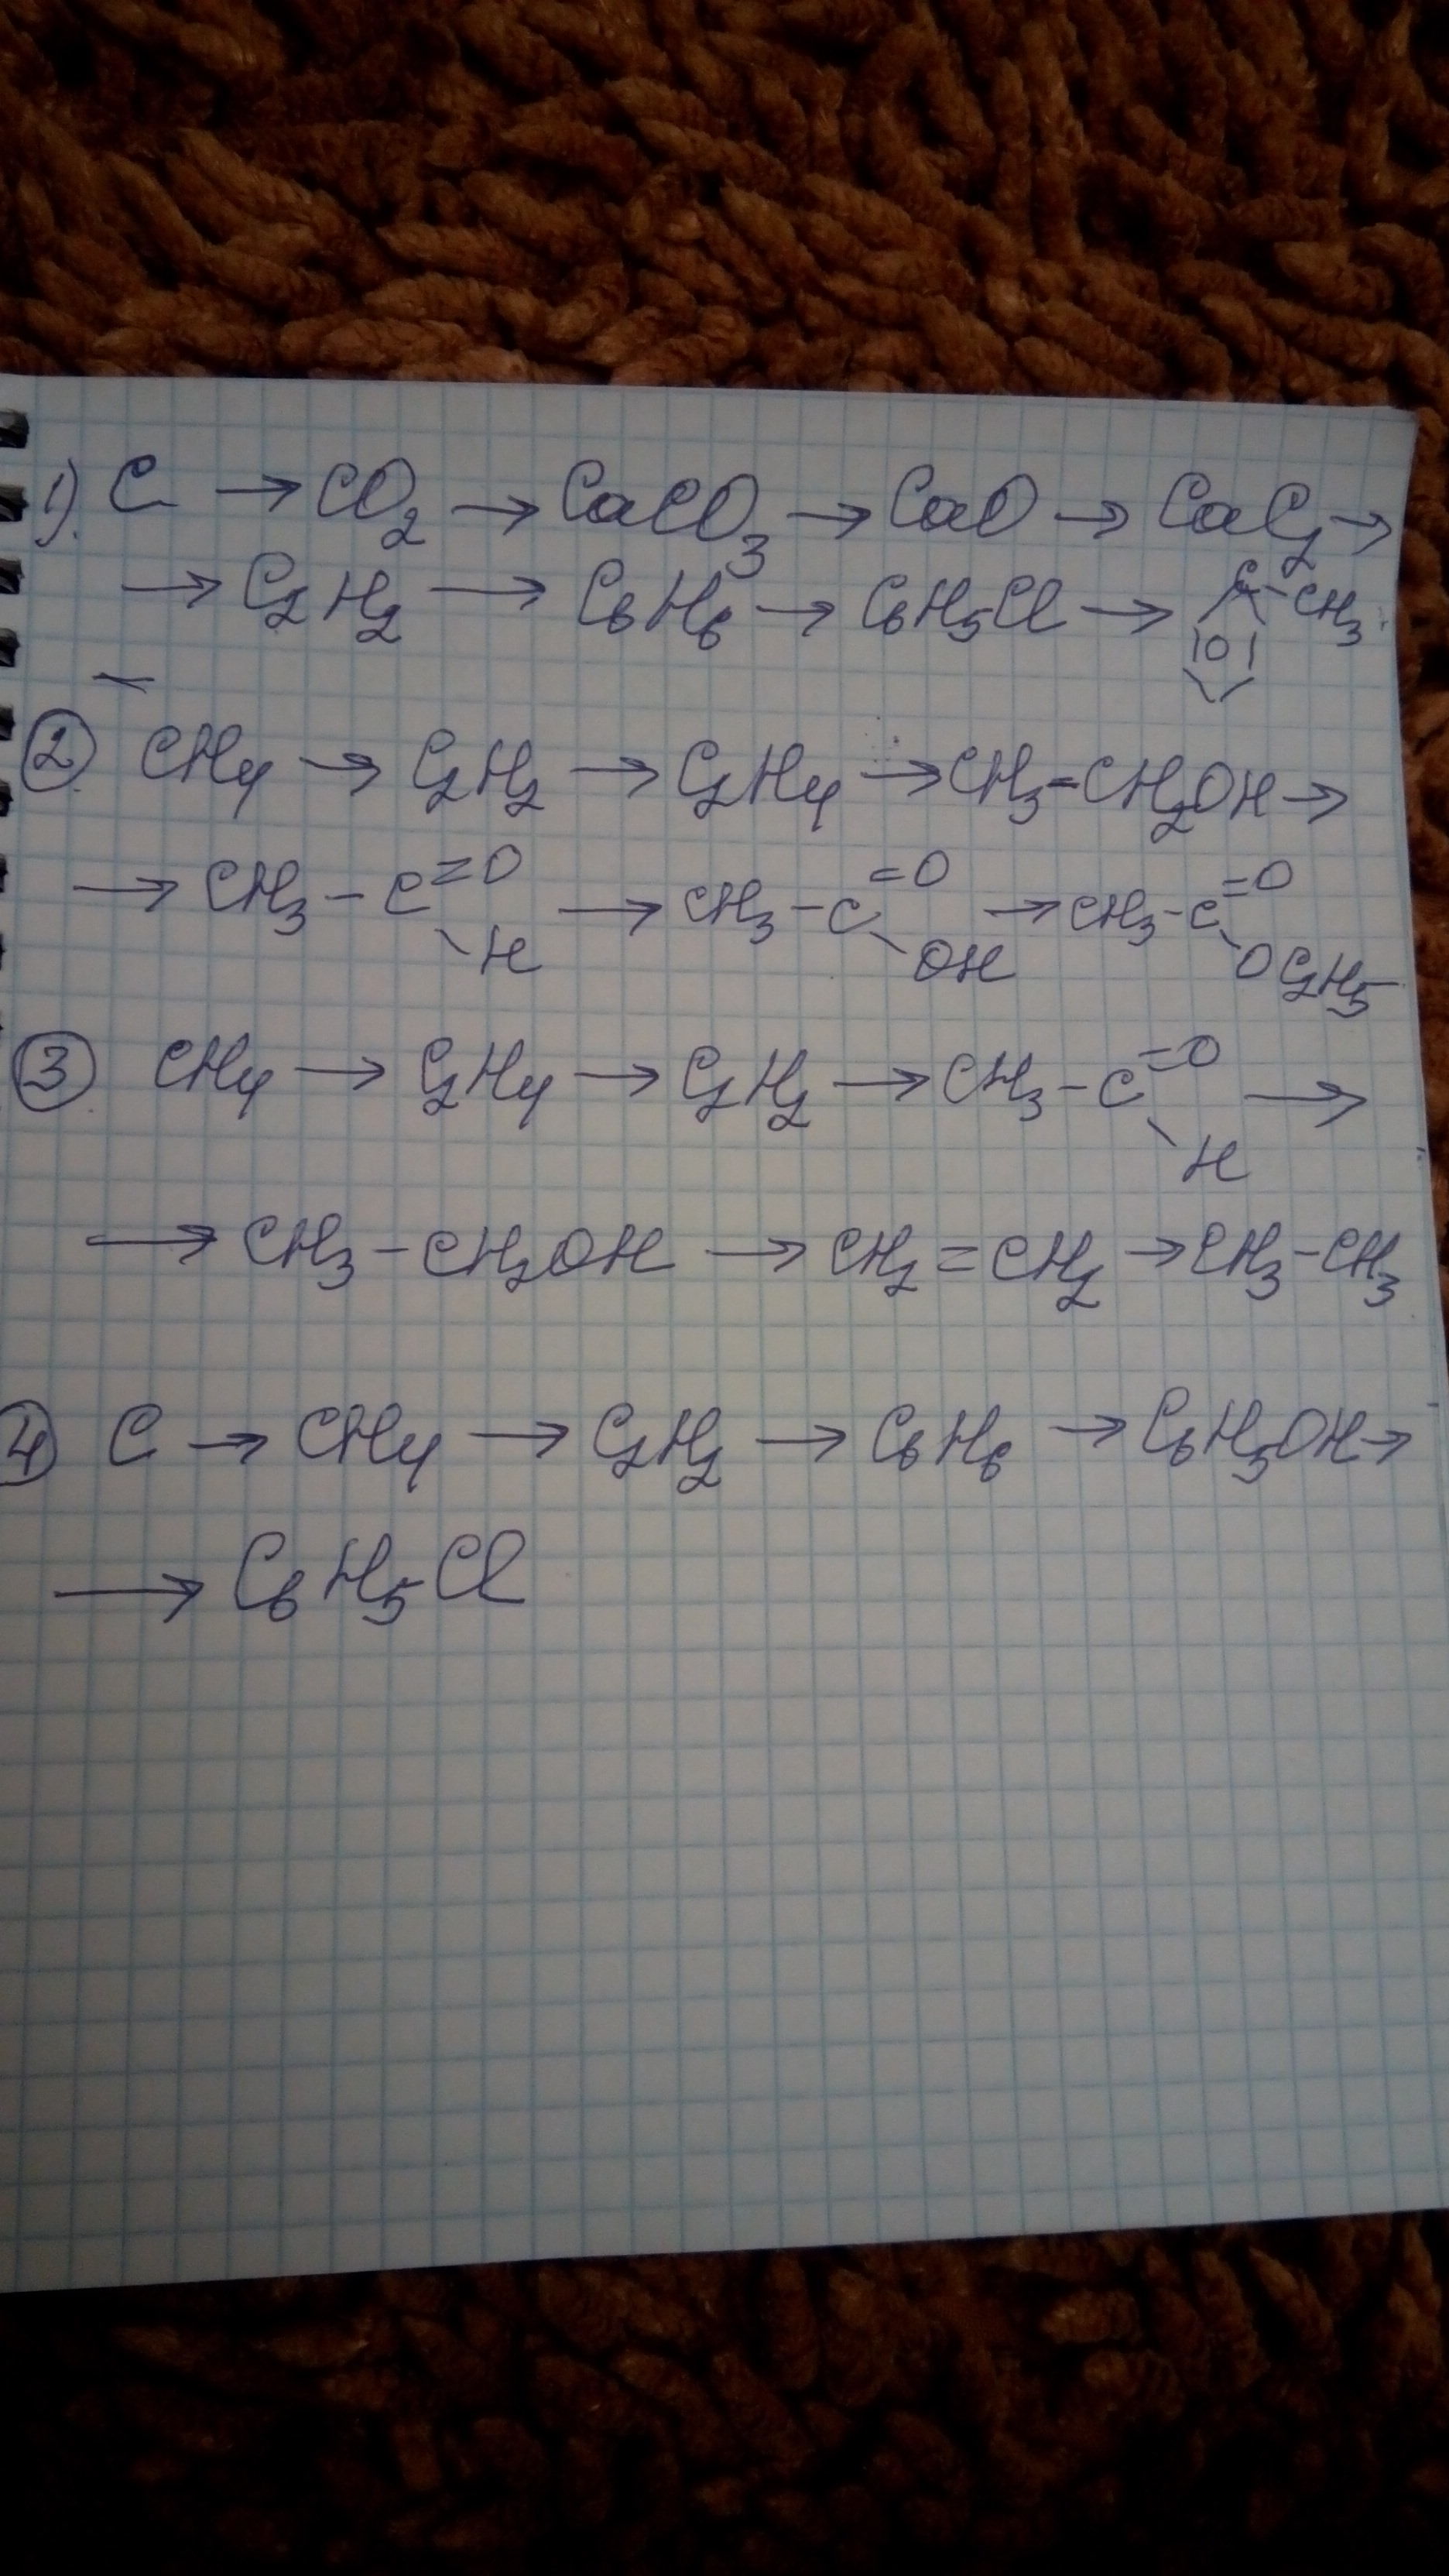 1). C → CO₂ → CaCO₃ → CaO → CaC₂ →
→ C₂H₂ → C₆H₆ → C₆H₅Cl → C-CH₃
② CH₄ → C₂H₂ → C₂H₄ → CH₃-CH₂OH →
→ CH₃-C=O-H → CH₃-C=O-OH → CH₃-C=O-OC₂H₅
③ CH₄ → C₂H₄ → C₂H₂ → CH₃-C=O-H →
→ CH₃-CH₂OH → CH₂=CH₂ → CH₃-CH₃
④ C → CH₄ → C₂H₂ → C₆H₆ → C₆H₅OH →
→ C₆H₅Cl